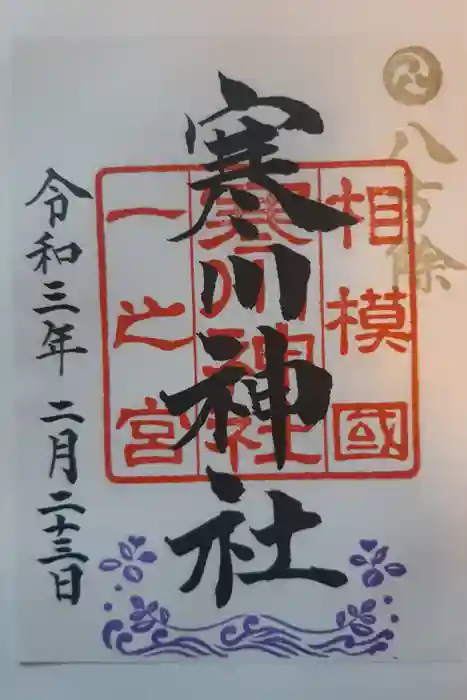 八方除
相模國
寒川神社
一之宮
寒川神社
令和三年 二月二十三日